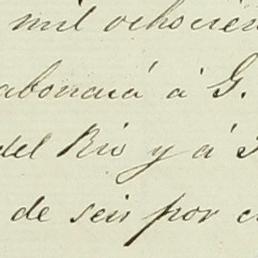 mil ochocien
abonará á G.
del Rio y á
de seis por c